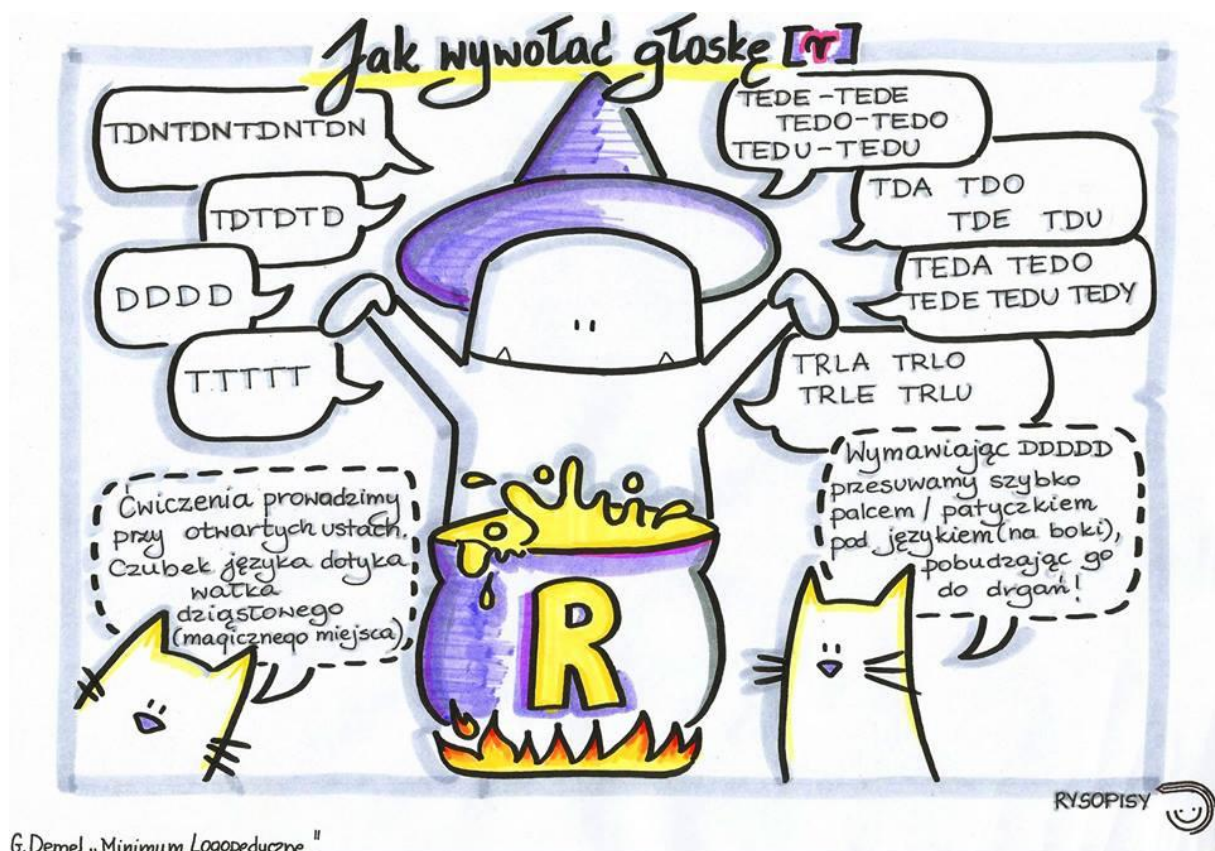 Jak wywołać głoskę [r]
TDNTDNTDNTDN
TDTDTD
DDDD
TTTTT
TEDE-TEDE
TEDO-TEDO
TEDU-TEDU
TDA TDO
TDE TDU
TEDA TEDO
TEDE TEDU TEDY
TRLA TRLO
TRLE TRLU
Ćwiczenia prowadzimy
przy otwartych ustach.
Czubek języka dotyka
wałka
dziąsłowego
(magicznego miejsca)
Wymawiając DDDDD
przesuwamy szybko
palcem / patyczkiem
pod językiem (na boki),
pobudzając go
do drgań!
R
RYSOPISY
G. Demel „Minimum Logopedyczne"